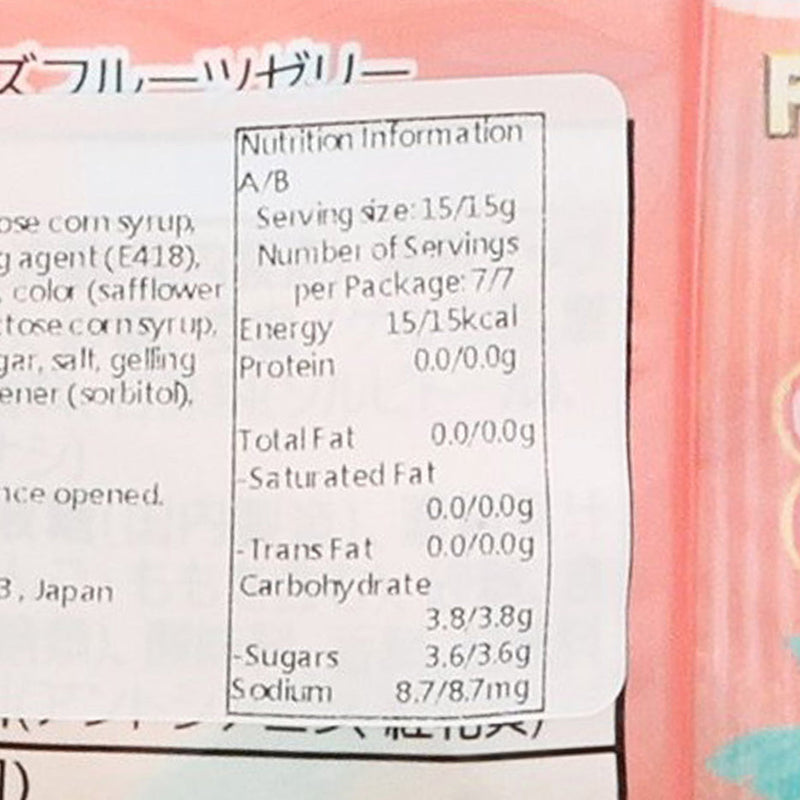 ズフルーツゼリー
Nutrition Information
A/B
ose corn syrup,
Serving size: 15/15g
g agent (E418),
Number of Servings
, color (safflower
per Package: 7/7
ctose corn syrup,
Energy 15/15kcal
gar, salt, gelling
Protein 0.0/0.0g
ener (sorbitol),
Total Fat 0.0/0.0g
-Saturated Fat
nce opened.
0.0/0.0g
-Trans Fat 0.0/0.0g
3, Japan
Carbohydrate
3.8/3.8g
-Sugars 3.6/3.6g
Sodium 8.7/8.7mg